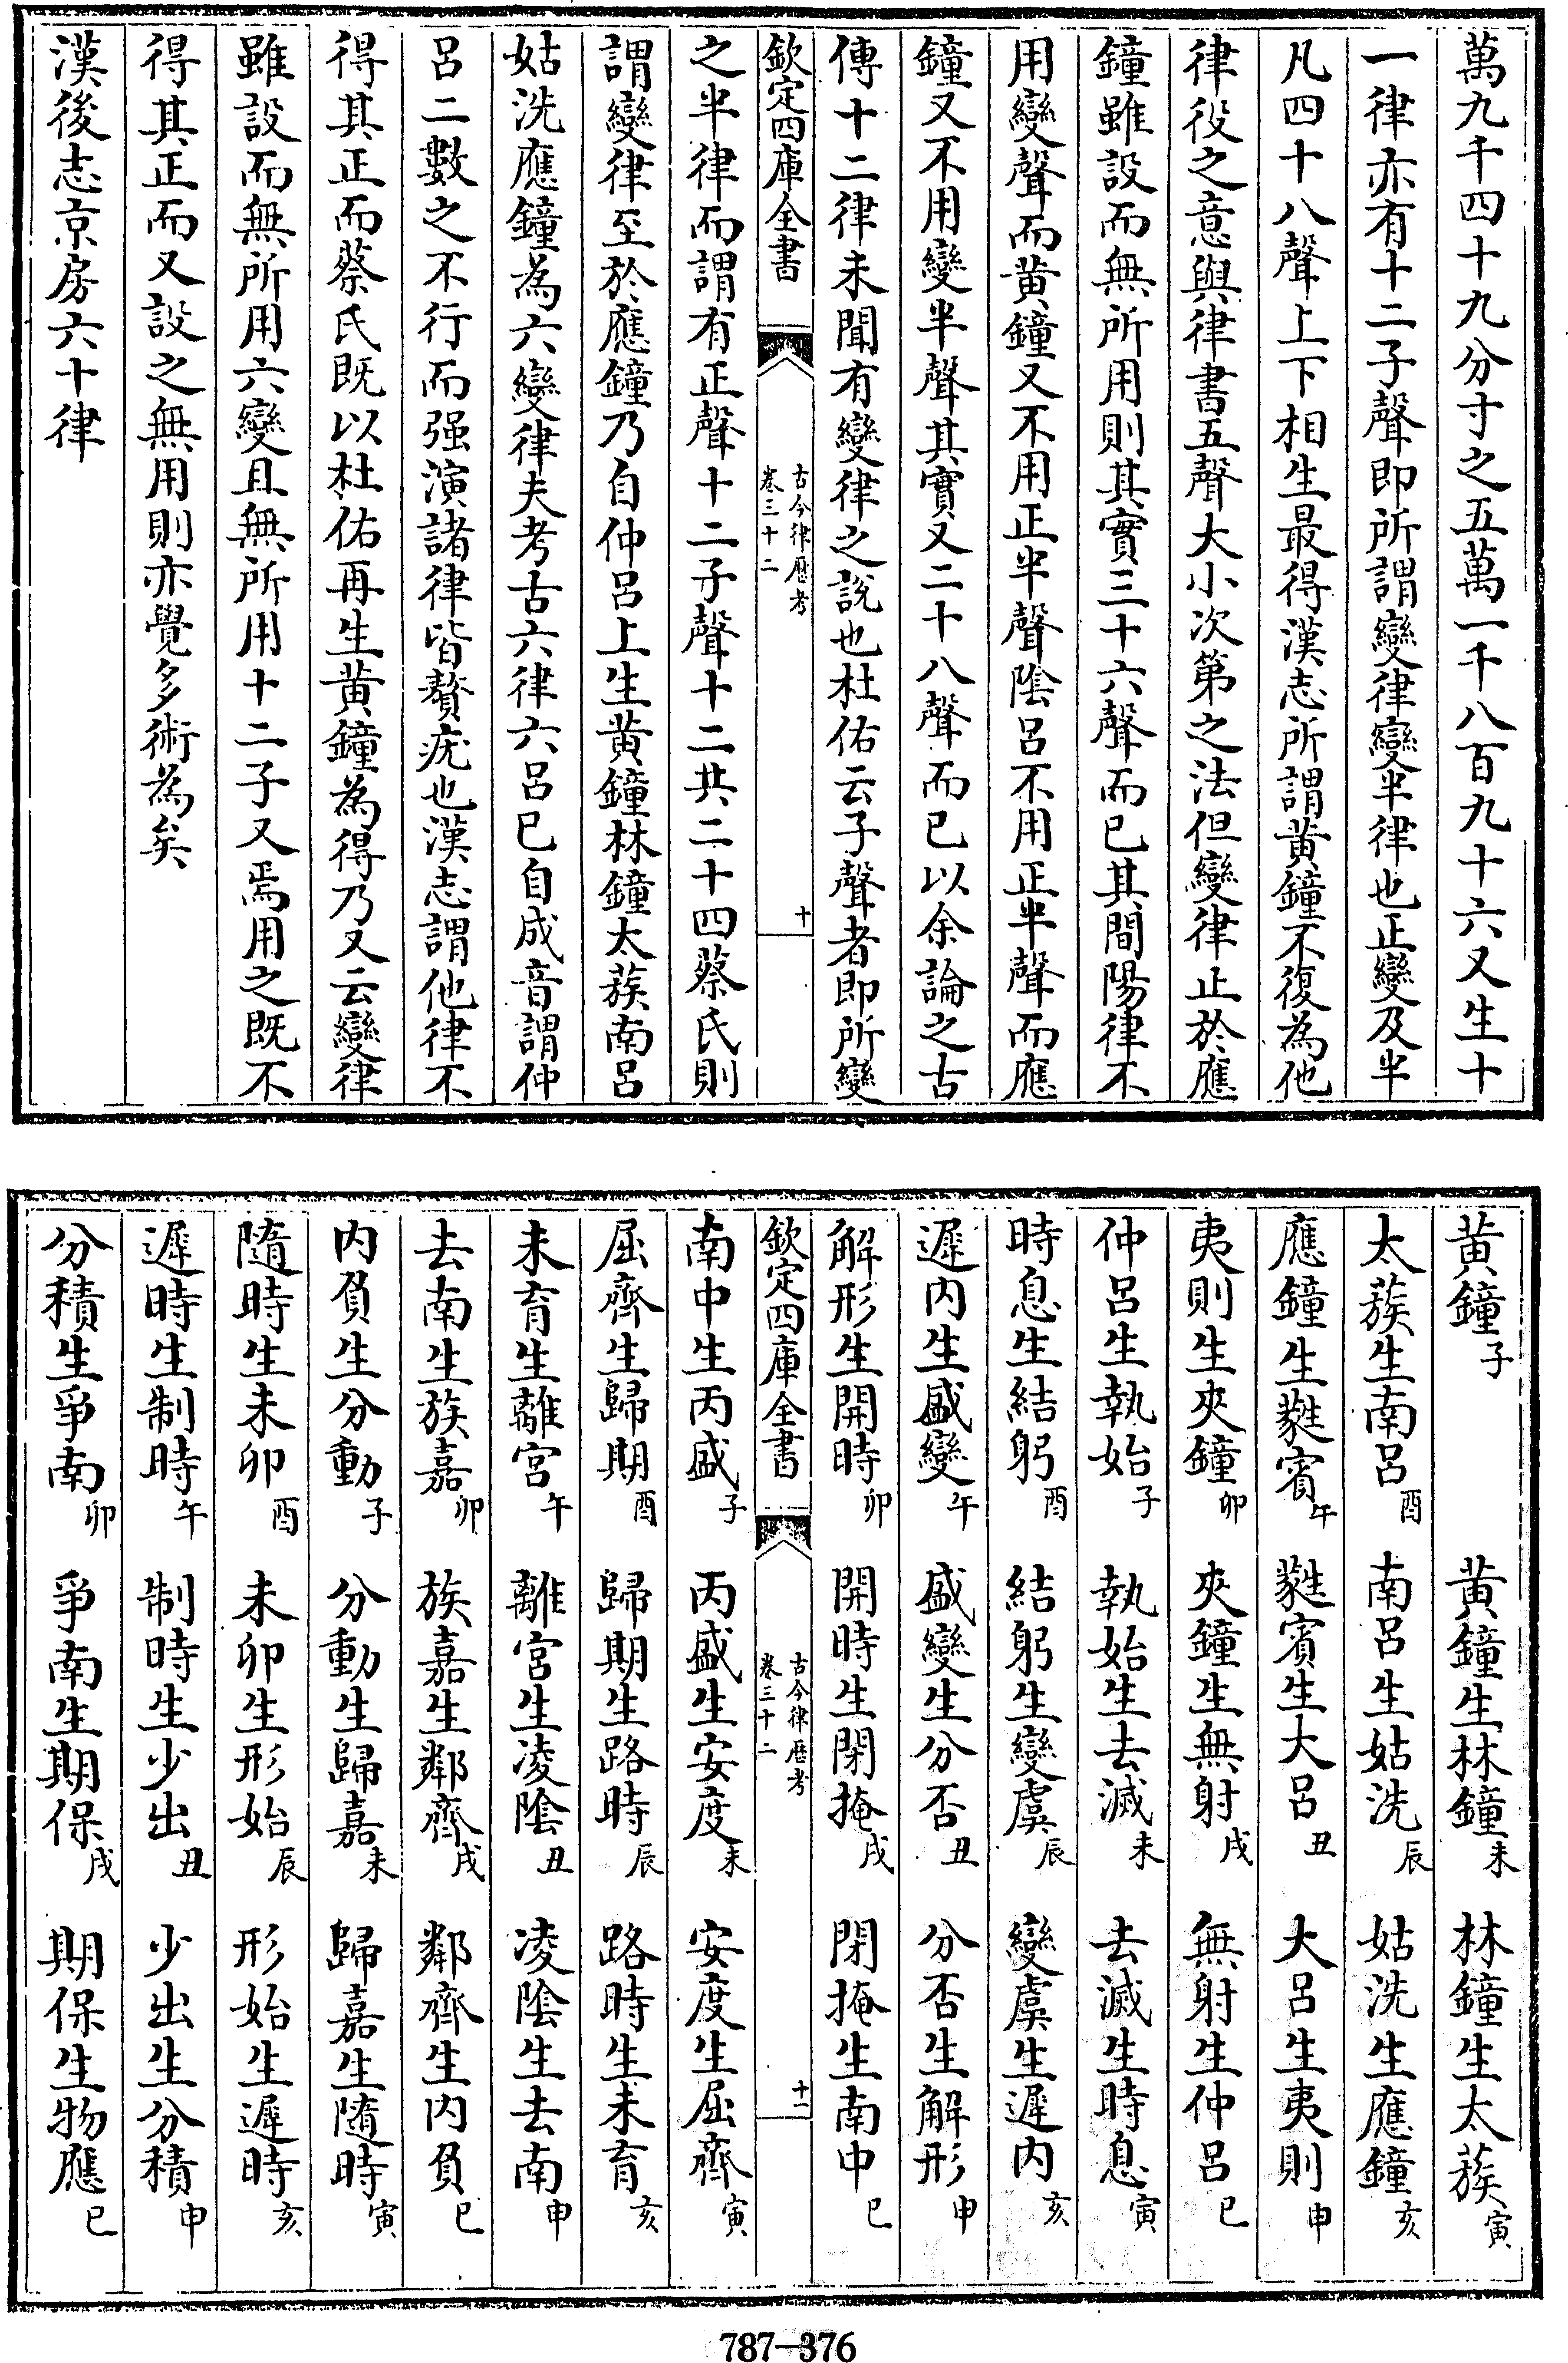 萬九千四十九分寸之五萬一千八百九十六又生十
一律亦有十二子聲即所謂變律變半律也正變及半
凡四十八聲上下相生最得漢志所謂黄鐘不復為他
律役之意與律書五聲大小次第之法但變律止於應
鐘雖設而無所用則其實三十六聲而已其間陽律不
用變聲而黄鐘又不用正半聲陰呂不用正半聲而應
鐘又不用變半聲其實又二十八聲而已以余論之古
傳十二律未聞有變律之說也杜佑云子聲者即所變
欽定四庫全書
古今律厯考
卷三十二
十
之半律而謂有正聲十二子聲十二共二十四蔡氏則
謂變律至於應鐘乃自仲呂上生黄鐘林鐘太蔟南呂
姑洗應鐘為六變律夫考古六律六呂已自成音謂仲
呂二數之不行而强演諸律皆贅疣也漢志謂他律不
得其正而蔡氏既以杜佑再生黄鐘為得乃又云變律
雖設而無所用六變且無所用十二子又焉用之既不
得其正而又設之無用則亦覺多術為矣
漢後志京房六十律
黄鐘子　黄鐘生林鐘未　林鐘生太蔟寅
太蔟生南呂酉　南呂生姑洗辰　姑洗生應鐘亥
應鐘生蕤賓午　蕤賓生大呂丑　大呂生夷則申
夷則生夾鐘卯　夾鐘生無射戌　無射生仲呂巳
仲呂生執始子　執始生去滅未　去滅生時息寅
時息生結躬酉　結躬生變虞辰　變虞生遲内亥
遲内生盛變午　盛變生分否丑　分否生解形申
解形生開時卯　開時生閉掩戌　閉掩生南中巳
欽定四庫全書
古今律厯考
卷三十二
十一
南中生丙盛子　丙盛生安度未　安度生屈齊寅
屈齊生歸期酉　歸期生路時辰　路時生未育亥
未育生離宮午　離宮生凌陰丑　凌陰生去南申
去南生族嘉卯　族嘉生鄰齊戌　鄰齊生内負巳
内負生分動子　分動生歸嘉未　歸嘉生隨時寅
隨時生未卯酉　未卯生形始辰　形始生遲時亥
遲時生制時午　制時生少出丑　少出生分積申
分積生爭南卯　爭南生期保戌　期保生物應巳
787—376